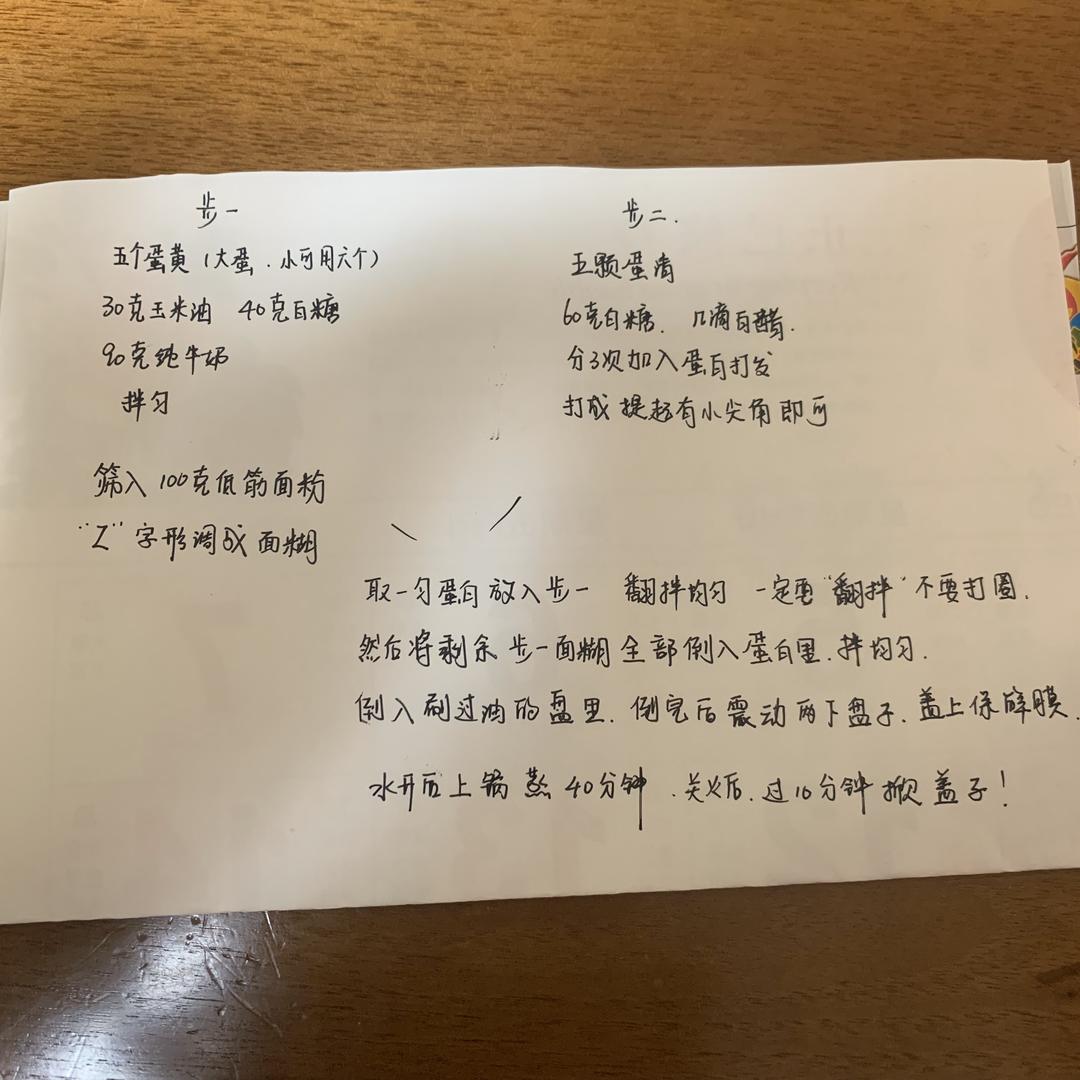 步一
五个蛋黄(大蛋.小可用六个)
30克玉米油 40克白糖
90克纯牛奶
拌匀
筛入100克低筋面粉
"Z"字形调成面糊
步二.
五颗蛋清
60克白糖.几滴白醋.
分3次加入蛋白打发
打成提起有小尖角即可
取一勺蛋白放入步一 翻拌均匀 一定要"翻拌"不要打圈.
然后将剩余步一面糊全部倒入蛋白里.拌均匀.
倒入刷过油的盘里.倒完后震动两下盘子.盖上保鲜膜.
水开后上锅蒸40分钟.关火后.过10分钟掀盖子!